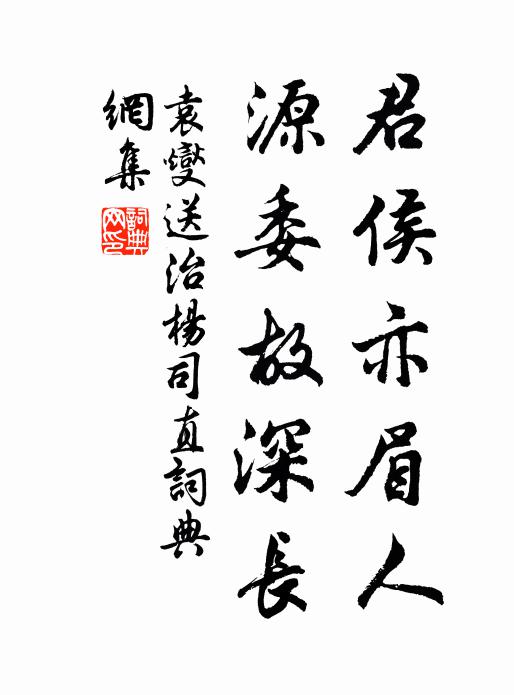 君侯亦眉人
源委故深長
袁燮送治楊司直詞典
網集
詞典网印